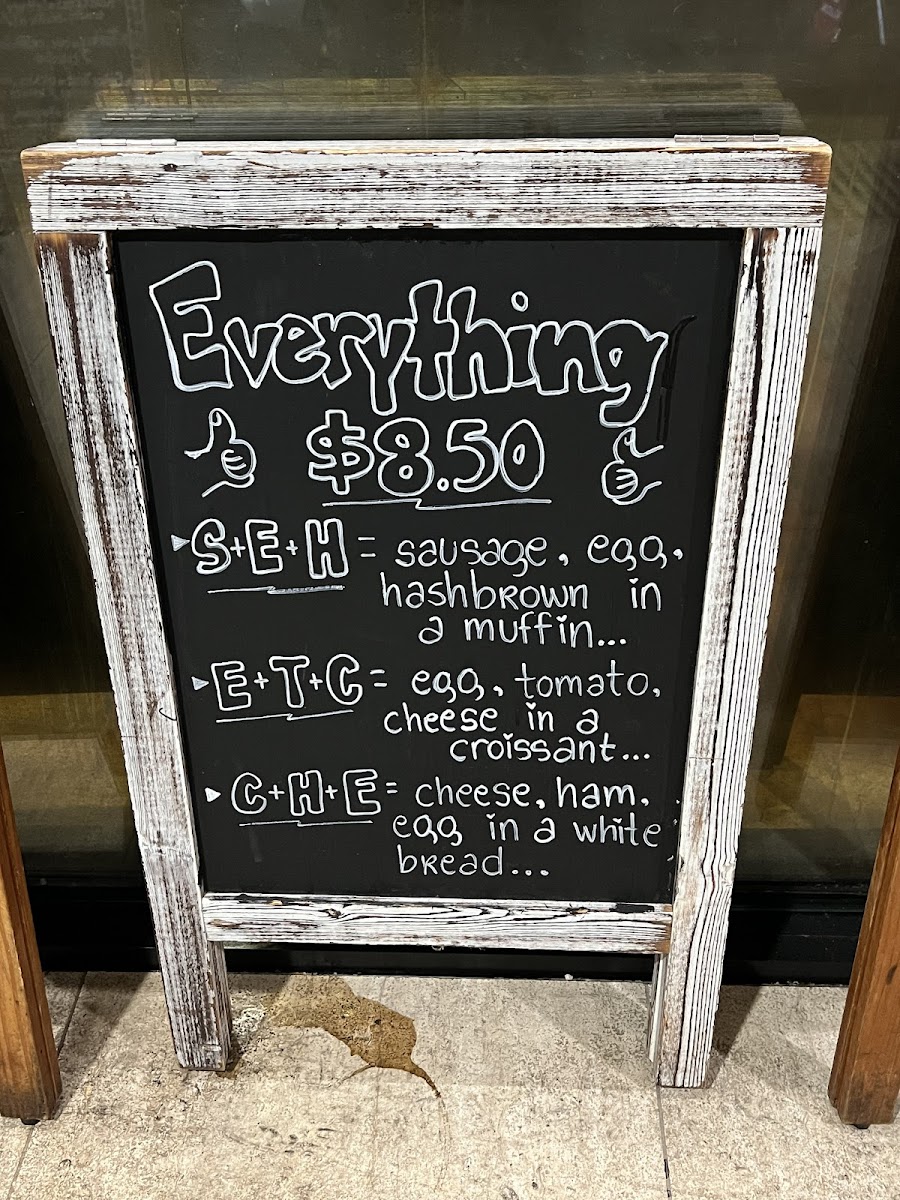 Everything
$8.50
S+E+H = sausage, egg,
hashbrown in
a muffin...
E+T+C = egg, tomato,
cheese in a
croissant...
C+H+E = cheese, ham,
egg in a white
bread...